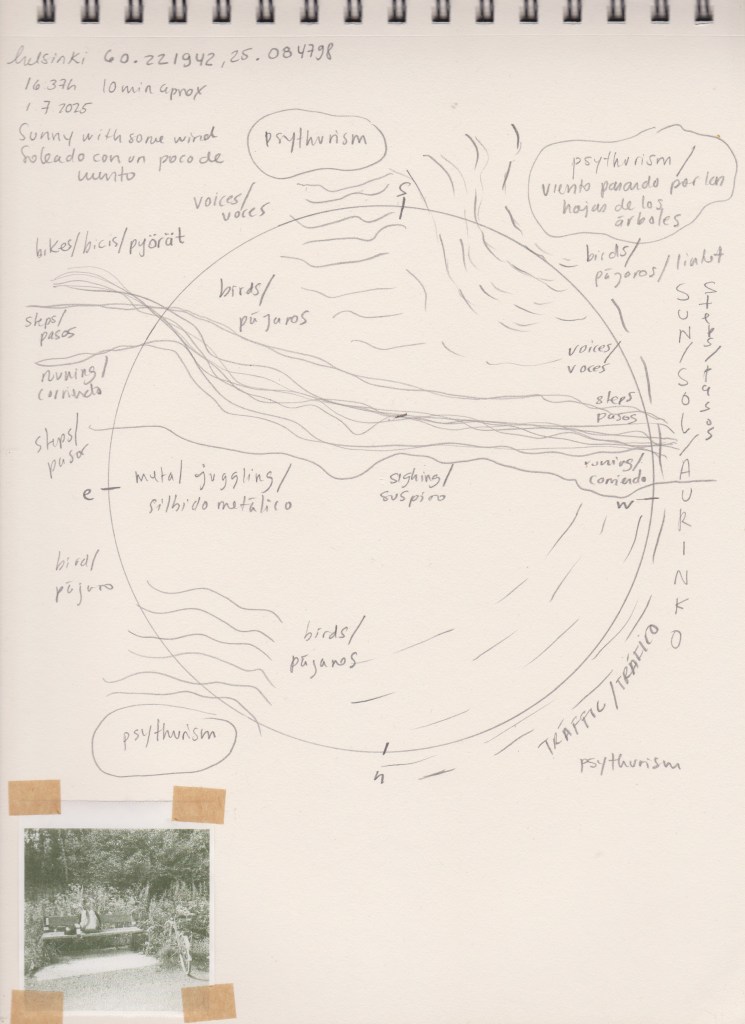 helsinki 60.221942, 25.084798
16 37h 10 min aprox
1 7 2025
Sunny with some wind
Soleado con un poco de
viento
psythurism
psythurism/
viento pasando por las
hojas de los
árboles
voices/
voces
s
bikes/bicis/pyörät
birds/
pájaros/linnut
birds/
pájaros
steps/
pasos
SUN/SOL/AURINKO
steps/pasos
voices/
voces
runing/
corriendo
steps
pasos
steps/
pasos
runing/
corriendo
metal juggling/
silbido metálico
sighing/
suspiro
e
w
bird/
pájaro
birds/
pájaros
TRÁFFIC/TRÁFICO
psythurism
psythurism
n